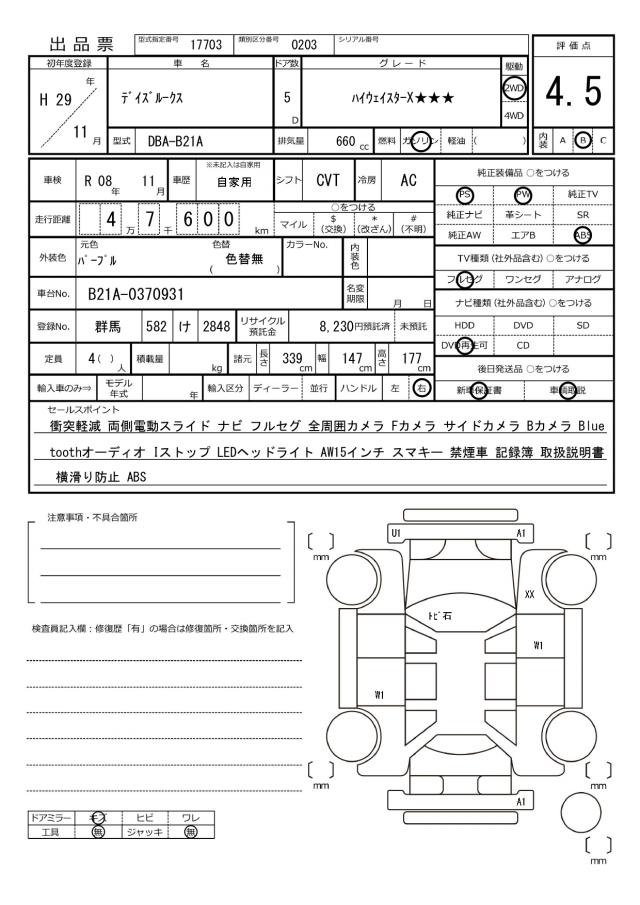 出品票 型式指定番号 17703 類別区分番号 0203 シリアル番号
評価点
4.5
内装 A B C
初年度登録 車名 ドア数 グレード 駆動
H 29 年 11 月
デイズルークス 5 D ハイウェイスターX★★★ 2WD 4WD
型式 DBA-B21A 排気量 660 cc 燃料 ガソリン 軽油 ( )
車検 R 08 年 11 月 車歴 ※未記入は自家用 自家用 シフト CVT 冷房 AC
走行距離 4 万 7 千 6 0 0 km
○をつける
マイル $(交換) *(改ざん) #(不明)
外装色 元色 パープル 色替 ( 色替無 ) カラーNo. 内装色
車台No. B21A-0370931 名変期限 月 日
登録No. 群馬 582 け 2848 リサイクル預託金 8,230円預託済 未預託
定員 4( )人 積載量 kg 諸元 長さ 339 cm 幅 147 cm 高さ 177 cm
輸入車のみ⇒ モデル年式 年 輸入区分 ディーラー 並行 ハンドル 左 右
純正装備品 ○をつける
PS PW 純正TV
純正ナビ 革シート SR
純正AW エアB ABS
TV種類 (社外品含む) ○をつける
フルセグ ワンセグ アナログ
ナビ種類 (社外品含む) ○をつける
HDD DVD SD
DVD再生可 CD
後日発送品 ○をつける
新車保証書 車輌取説
セールスポイント
衝突軽減 両側電動スライド ナビ フルセグ 全周囲カメラ Fカメラ サイドカメラ Bカメラ Blue
toothオーディオ Iストップ LEDヘッドライト AW15インチ スマキー 禁煙車 記録簿 取扱説明書
横滑り防止 ABS
注意事項・不具合箇所
検査員記入欄：修復歴「有」の場合は修復箇所・交換箇所を記入
U1 A1
[ ] mm [ ] mm
XX
トビ石
W1
W1
[ ] mm [ ] mm
A1
[ ] mm
ドアミラー キズ ヒビ ワレ
工具 無 ジャッキ 無